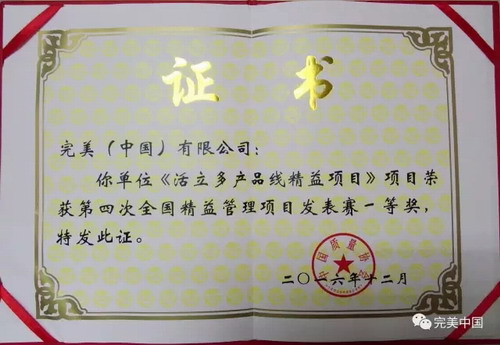 证书
完美（中国）有限公司：
你单位《活立多产品线精益项目》项目荣
获第四次全国精益管理项目发表赛一等奖，
特发此证。
中国质量协会
二〇一六年十二月
完美中国